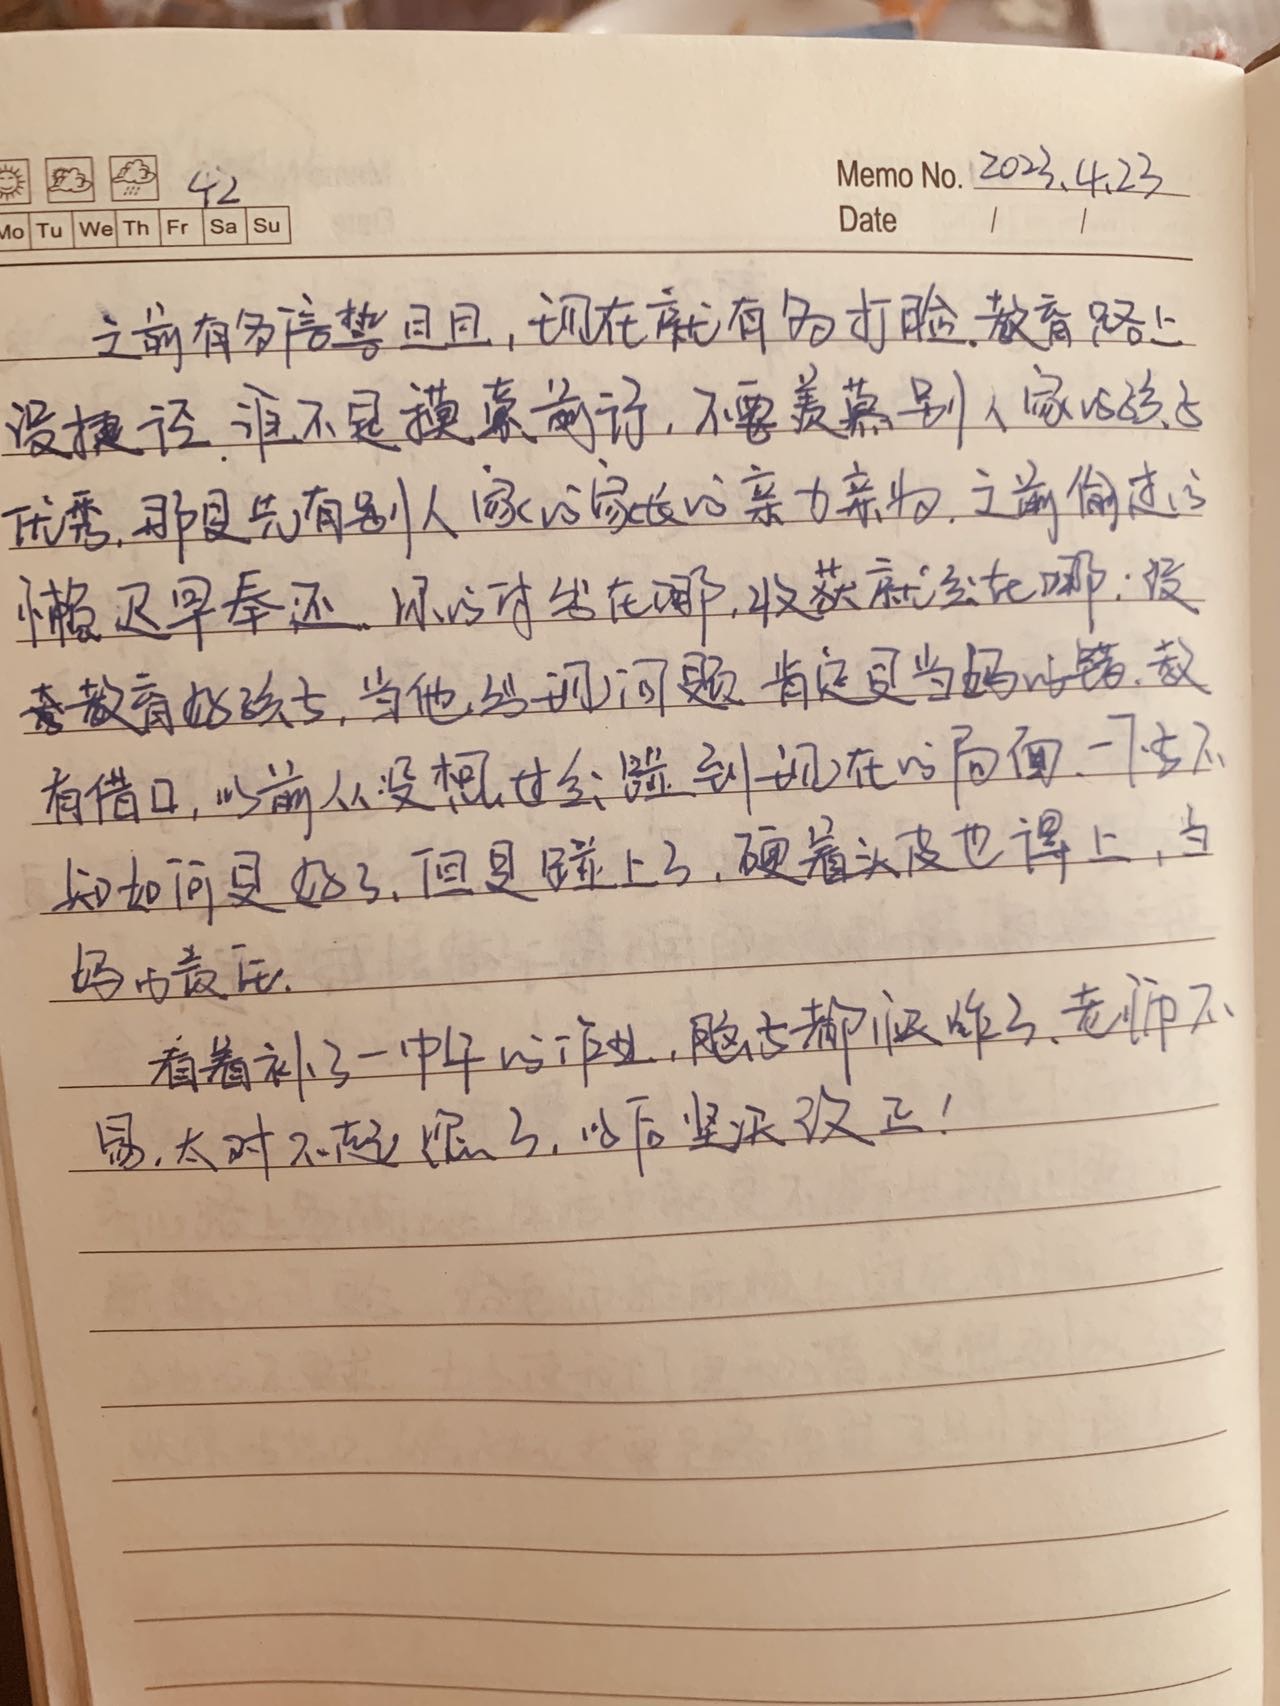 42
Memo No. 2023.4.23
Mo Tu We Th Fr Sa Su
Date / /
之前有多信誓旦旦,现在就有多打脸.教育路上
没捷径.谁不是摸索前行,不要羡慕别人家的孩子
优秀,那是先有别人家的家长的亲力亲为.之前偷过的
懒迟早奉还.你的时间花在哪,收获就会在哪;没
教育好孩子,当他出现问题肯定是当妈的错.没
有借口,以前从没想过会碰到现在的局面.一下子不
知如何是好了,但是碰上了,硬着头皮也得上,当
妈的责任.
看着补了一中午的作业,脑子都懵了.老师不
易,太对不起您了,以后坚决改正!